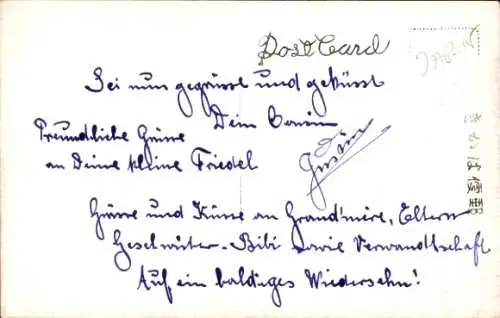 Post Card
Sei nun gegrüsst und geküsst
Dein Cousin
Freundliche Grüsse
an Deine kleine Friedel
Grüsse und Küsse an Grand'mère, Eltern
Geschwister - Bibi sowie Verwandtschaft
Auf ein baldiges Wiedersehn!